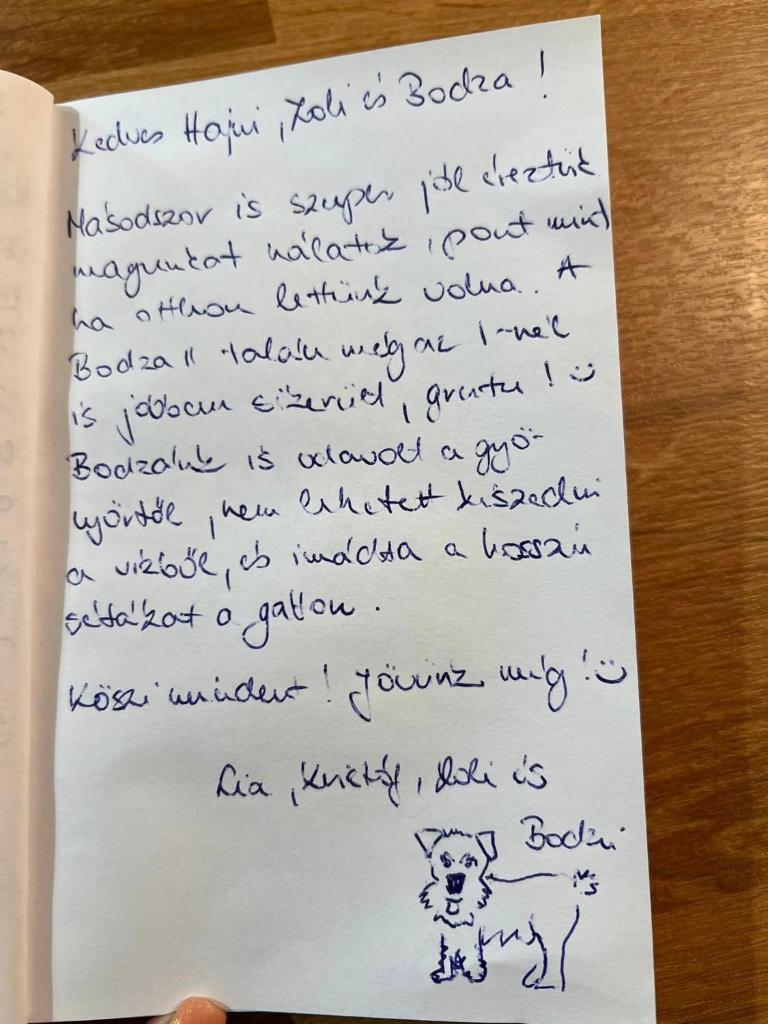 Kedves Hajni, Zoli és Bodza!
Másodszor is szuper jól éreztük
magunkat nálatok, pont mint
ha otthon lettünk volna. A
Bodza II talán még az I-nél
is jobban sikerült, gratu! :)
Bodzánk is odavolt a gyö-
nyörtől, nem lehetett kiszedni
a vízből, és imádta a hosszú
sétákat a gáton.
Köszi mindent! Jövünk még! :)
Lia, Kristóf, Zoli és
Bodzi